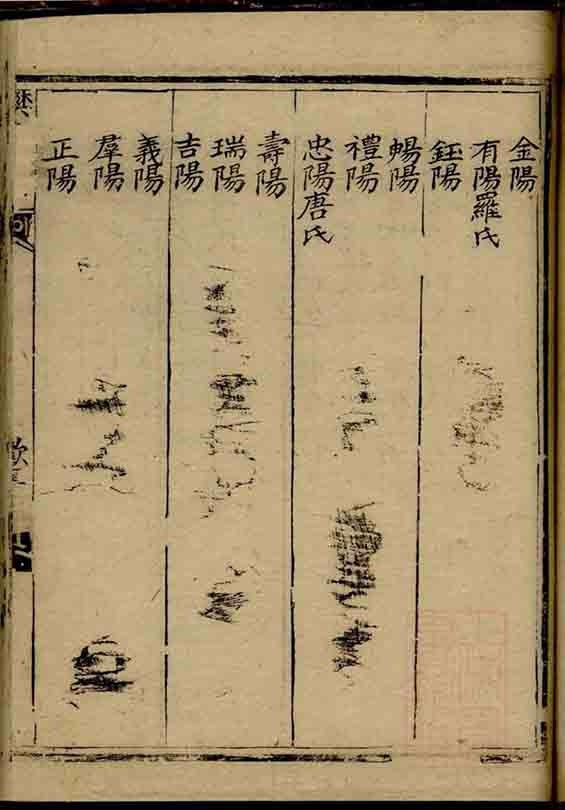 金陽
有陽羅氏
鈺陽
暢陽
禮陽
忠陽唐氏
壽陽
瑞陽
吉陽
義陽
羣陽
正陽